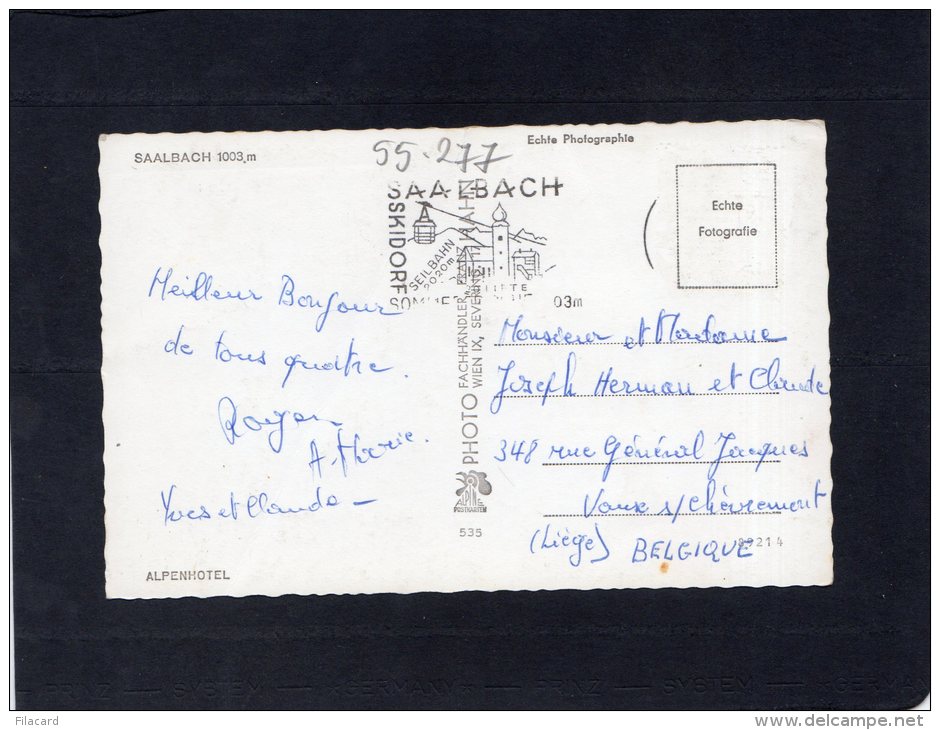 SAALBACH 1003,m
55-277
Echte Photographie
SAALBACH
SKIDORF
SEILBAHN
2020m
LIFTE
03m
Echte
Fotografie
Meilleur Bonjour
de tous quatre.
Roger
A. Marie.
Yves et Claude -
ALPENHOTEL
PHOTO FACHHÄNDLER, FRANZ HAHN
WIEN IX, SEVERING
ALPINE
POSTKARTEN
535
Monsieur et Madame
Joseph Herman et Claude
348 rue Général Jacques
Vaux s/ Chèvremont
(Liège) BELGIQUE
89214
PRINZ — SYSTEM — GERMANY — PRINZ — SYSTEM — GERMAN
Filacard
www.delcampe.net